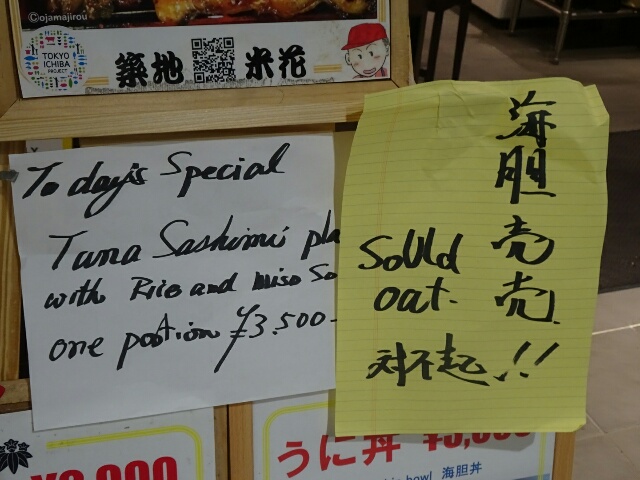 ©ojamajirou
TOKYO
ICHIBA
PROJECT
築地 米花
Today's Special
Tuna Sashimi pla
with Rice and miso So
one portion ¥3.500-
海胆売売.
Sould
oat.
対不起!!
うに丼
bowl 海胆丼